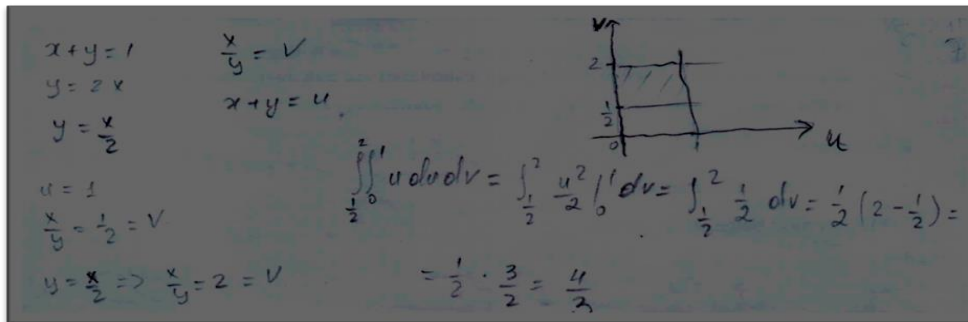 x + y = 1
y = 2x
y = x/2
u = 1
x/y = 1/2 = V
y = x/2 => x/y = 2 = V
x/y = V
x + y = u
V
2
1/2
0
1
u
∫_{1/2}^{2} ∫_0^1 u du dv = ∫_{1/2}^{2} u²/2 |_0^1 dv = ∫_{1/2}^{2} 1/2 dv = 1/2 (2 - 1/2) =
= 1/2 · 3/2 =